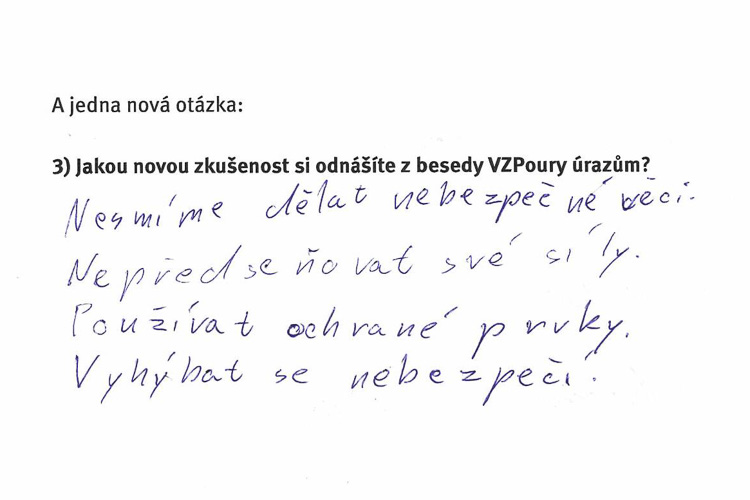 A jedna nová otázka:
3) Jakou novou zkušenost si odnášíte z besedy VZPoury úrazům?
Nesmíme dělat nebezpečné věci.
Nepředseňovat své síly.
Používat ochrané prvky.
Vyhýbat se nebezpečí.